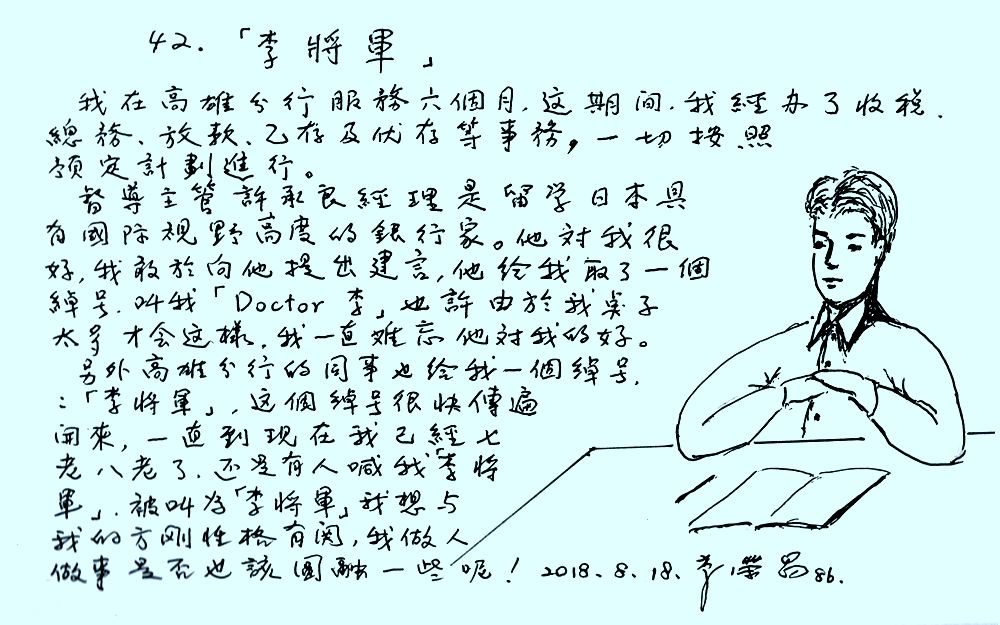 42.「李將軍」
我在高雄分行服務六個月.这期间.我經办了收税.
總務、放款、乙存及优存等事務,一切按照
預定計劃進行。
督導主管許承良經理是留学日本具
有國际視野高度的銀行家。他対我很
好,我敢於向他提出建言,他给我取了一個
綽号.叫我「Doctor李」也許由於我桌子
太 才会这樣.我一直难忘他对我的好。
另外高雄分行的同事也给我一個綽号.
:「李将軍」.这個綽号很快傳遍
開來,一直到現在我已經七
老八老了.还是有人喊我「李將
軍」.被叫为「李将軍」我想与
我的方刚性格有関,我做人
做事是否也該圓融一些呢!2018.8.18.李 86.